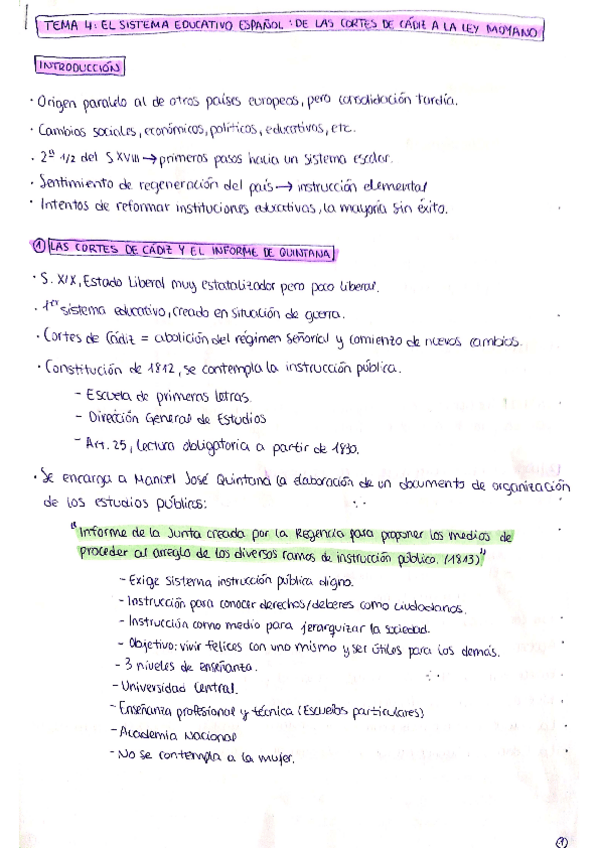 TEMA 4: EL SISTEMA EDUCATIVO ESPAÑOL: DE LAS CORTES DE CÁDIZ A LA LEY MOYANO
INTRODUCCIÓN
· Origen paralelo al de otros países europeos, pero consolidación tardía.
· Cambios sociales, económicos, políticos, educativos, etc.
· 2ª 1/2 del S XVIII → primeros pasos hacia un sistema escolar.
· Sentimiento de regeneración del país → instrucción elemental
· Intentos de reformar instituciones educativas, la mayoría sin éxito.
① LAS CORTES DE CÁDIZ Y EL INFORME DE QUINTANA
· S. XIX, Estado Liberal muy estatalizador pero poco liberal.
· 1er sistema educativo, creado en situación de guerra.
· Cortes de Cádiz = abolición del régimen señorial y comienzo de nuevos cambios.
· Constitución de 1812, se contempla la instrucción pública.
- Escuela de primeras letras.
- Dirección General de Estudios
- Art. 25, lectura obligatoria a partir de 1830.
· Se encarga a Manuel José Quintana la elaboración de un documento de organización
de los estudios públicos:
"Informe de la Junta creada por la Regencia para proponer los medios de
proceder al arreglo de los diversos ramos de instrucción pública. (1813)"
- Exige sistema instrucción pública digno.
- Instrucción para conocer derechos/deberes como ciudadanos.
- Instrucción como medio para jerarquizar la sociedad.
- Objetivo: vivir felices con uno mismo y ser útiles para los demás.
- 3 niveles de enseñanza.
- Universidad Central.
- Enseñanza profesional y técnica (Escuelas particulares)
- Academia Nacional
- No se contempla a la mujer.
①